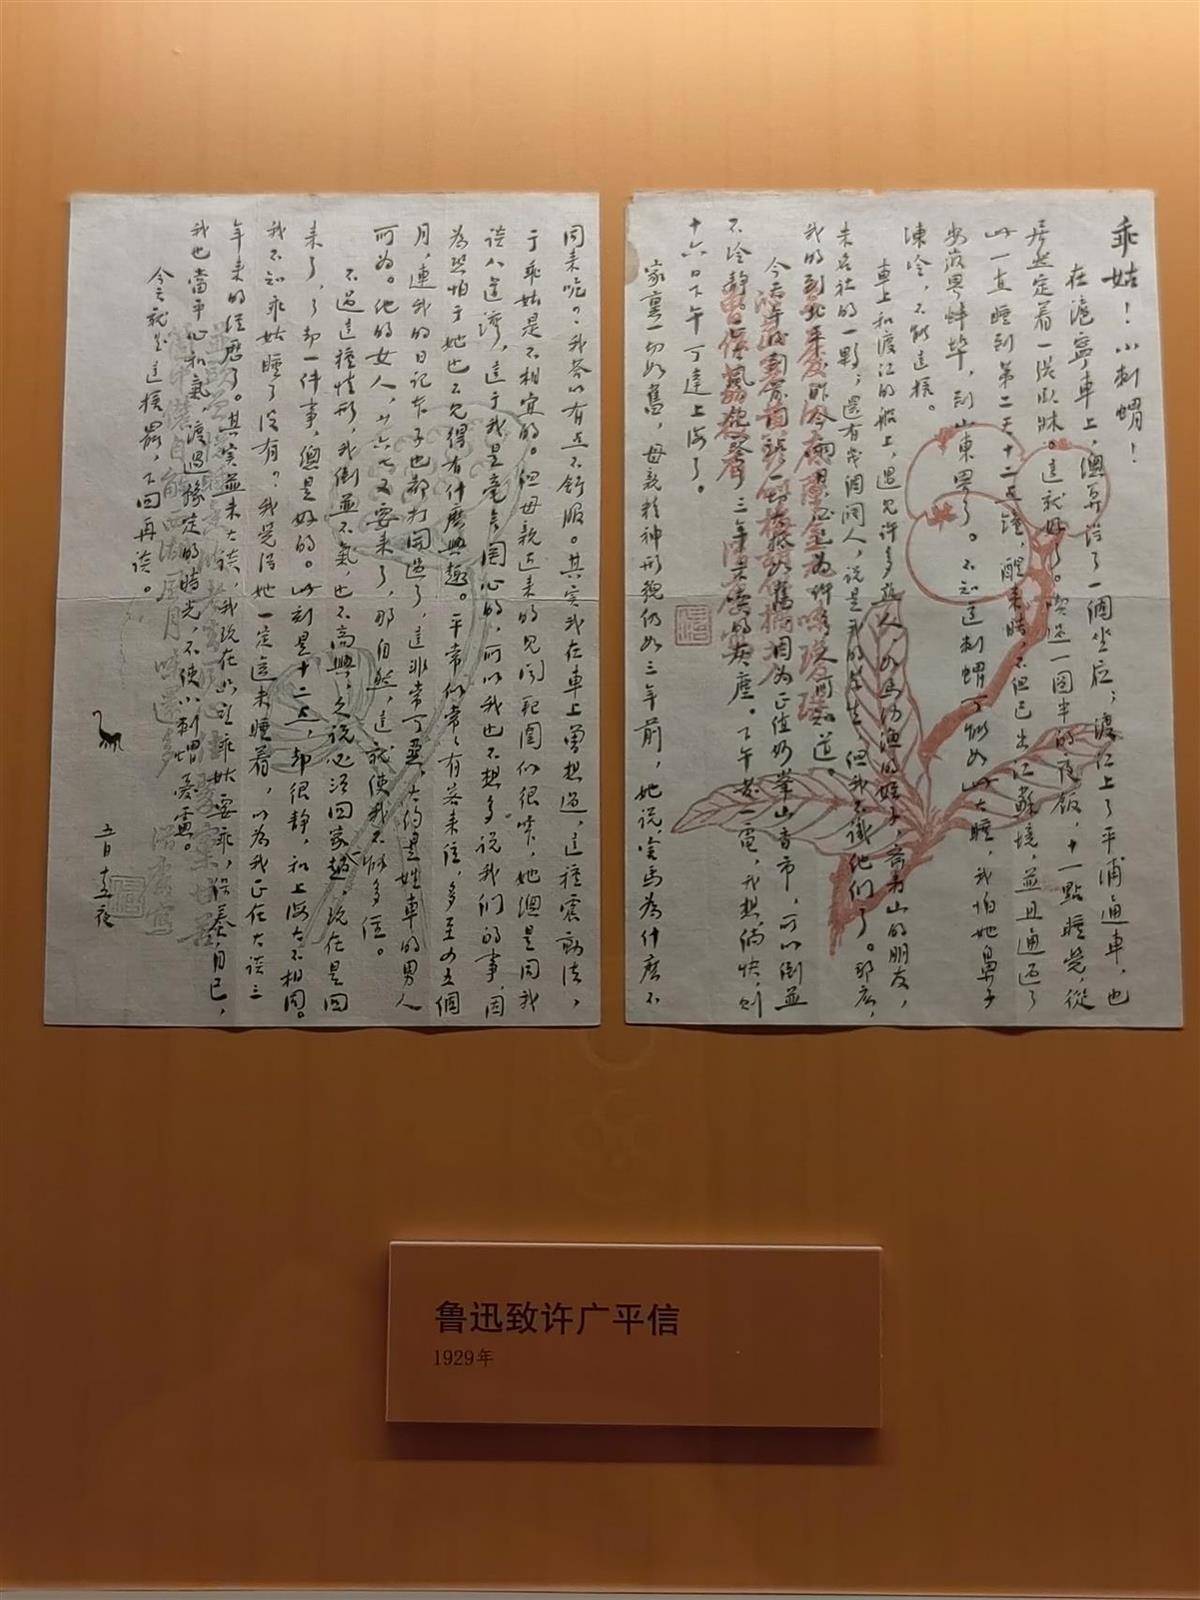 乖姑！小刺蝟！
在滬寧車上，總算得了一個坐位；渡江上了平浦通車，也
居然定着一張臥牀。這就好了。喫過一圓半的夜飯，十一點睡覺，從
此一直睡到第二天十二點鐘，醒來時，不但已出江蘇境，並且通過了
安徽界蚌埠，到山東界了。不知道刺蝟可能如此大睡，我怕她鼻子
凍冷，不能這樣。
車上和渡江的船上，遇見許多熟人，如馬幼漁的姪子，齊壽山的朋友，
未名社的一夥；還有幾個闊人，說是我的學生，但我不識他們了。那麽，
我的到北平，昨今兩日，必已為許多人所知道。
今天午後到前門站，一切大抵如舊，因為正值妙峯山香市，所以倒並
不冷靜。正大風，飽餐了三年未喫的灰塵。下午發一電，我想，倘快，則
十六日下午可達上海了。
家裏一切如舊，母親精神形貌仍如三年前，她說，害馬為什麽不
同來呢？我答以有點不舒服。其實我在車上曾想過，這種震動法，
于乖姑是不相宜的。但母親近來的見聞範圍似很窄，她總是同我
談八道灣，這于我是毫無關心的，所以我也不想多說我們的事，因
為恐怕于她也不見得有什麽興趣。平常似常常有客來住，多至四五個
月，連我的日記本子也都打開過了，這非常可惡，大約是姓車的男人
所為。他的女人，廿六七又要來了，那自然，這就使我不能多住。
不過這種情形，我倒並不氣，也不高興，久說必須回家一趟，現在是回
來了，了卻一件事，總是好的。此刻是十二點，卻很靜，和上海大不相同。
我不知乖姑睡了沒有？我覺得她一定還未睡着，以為我正在大談三
年來的經歷了。其實並未大談，我現在只望乖姑要乖，保養自己，
我也當平心和氣，渡過豫定的時光，不使小刺蝟憂慮。
今天就是這樣罷，下回再談。
五月十五夜
鲁迅致许广平信
1929年